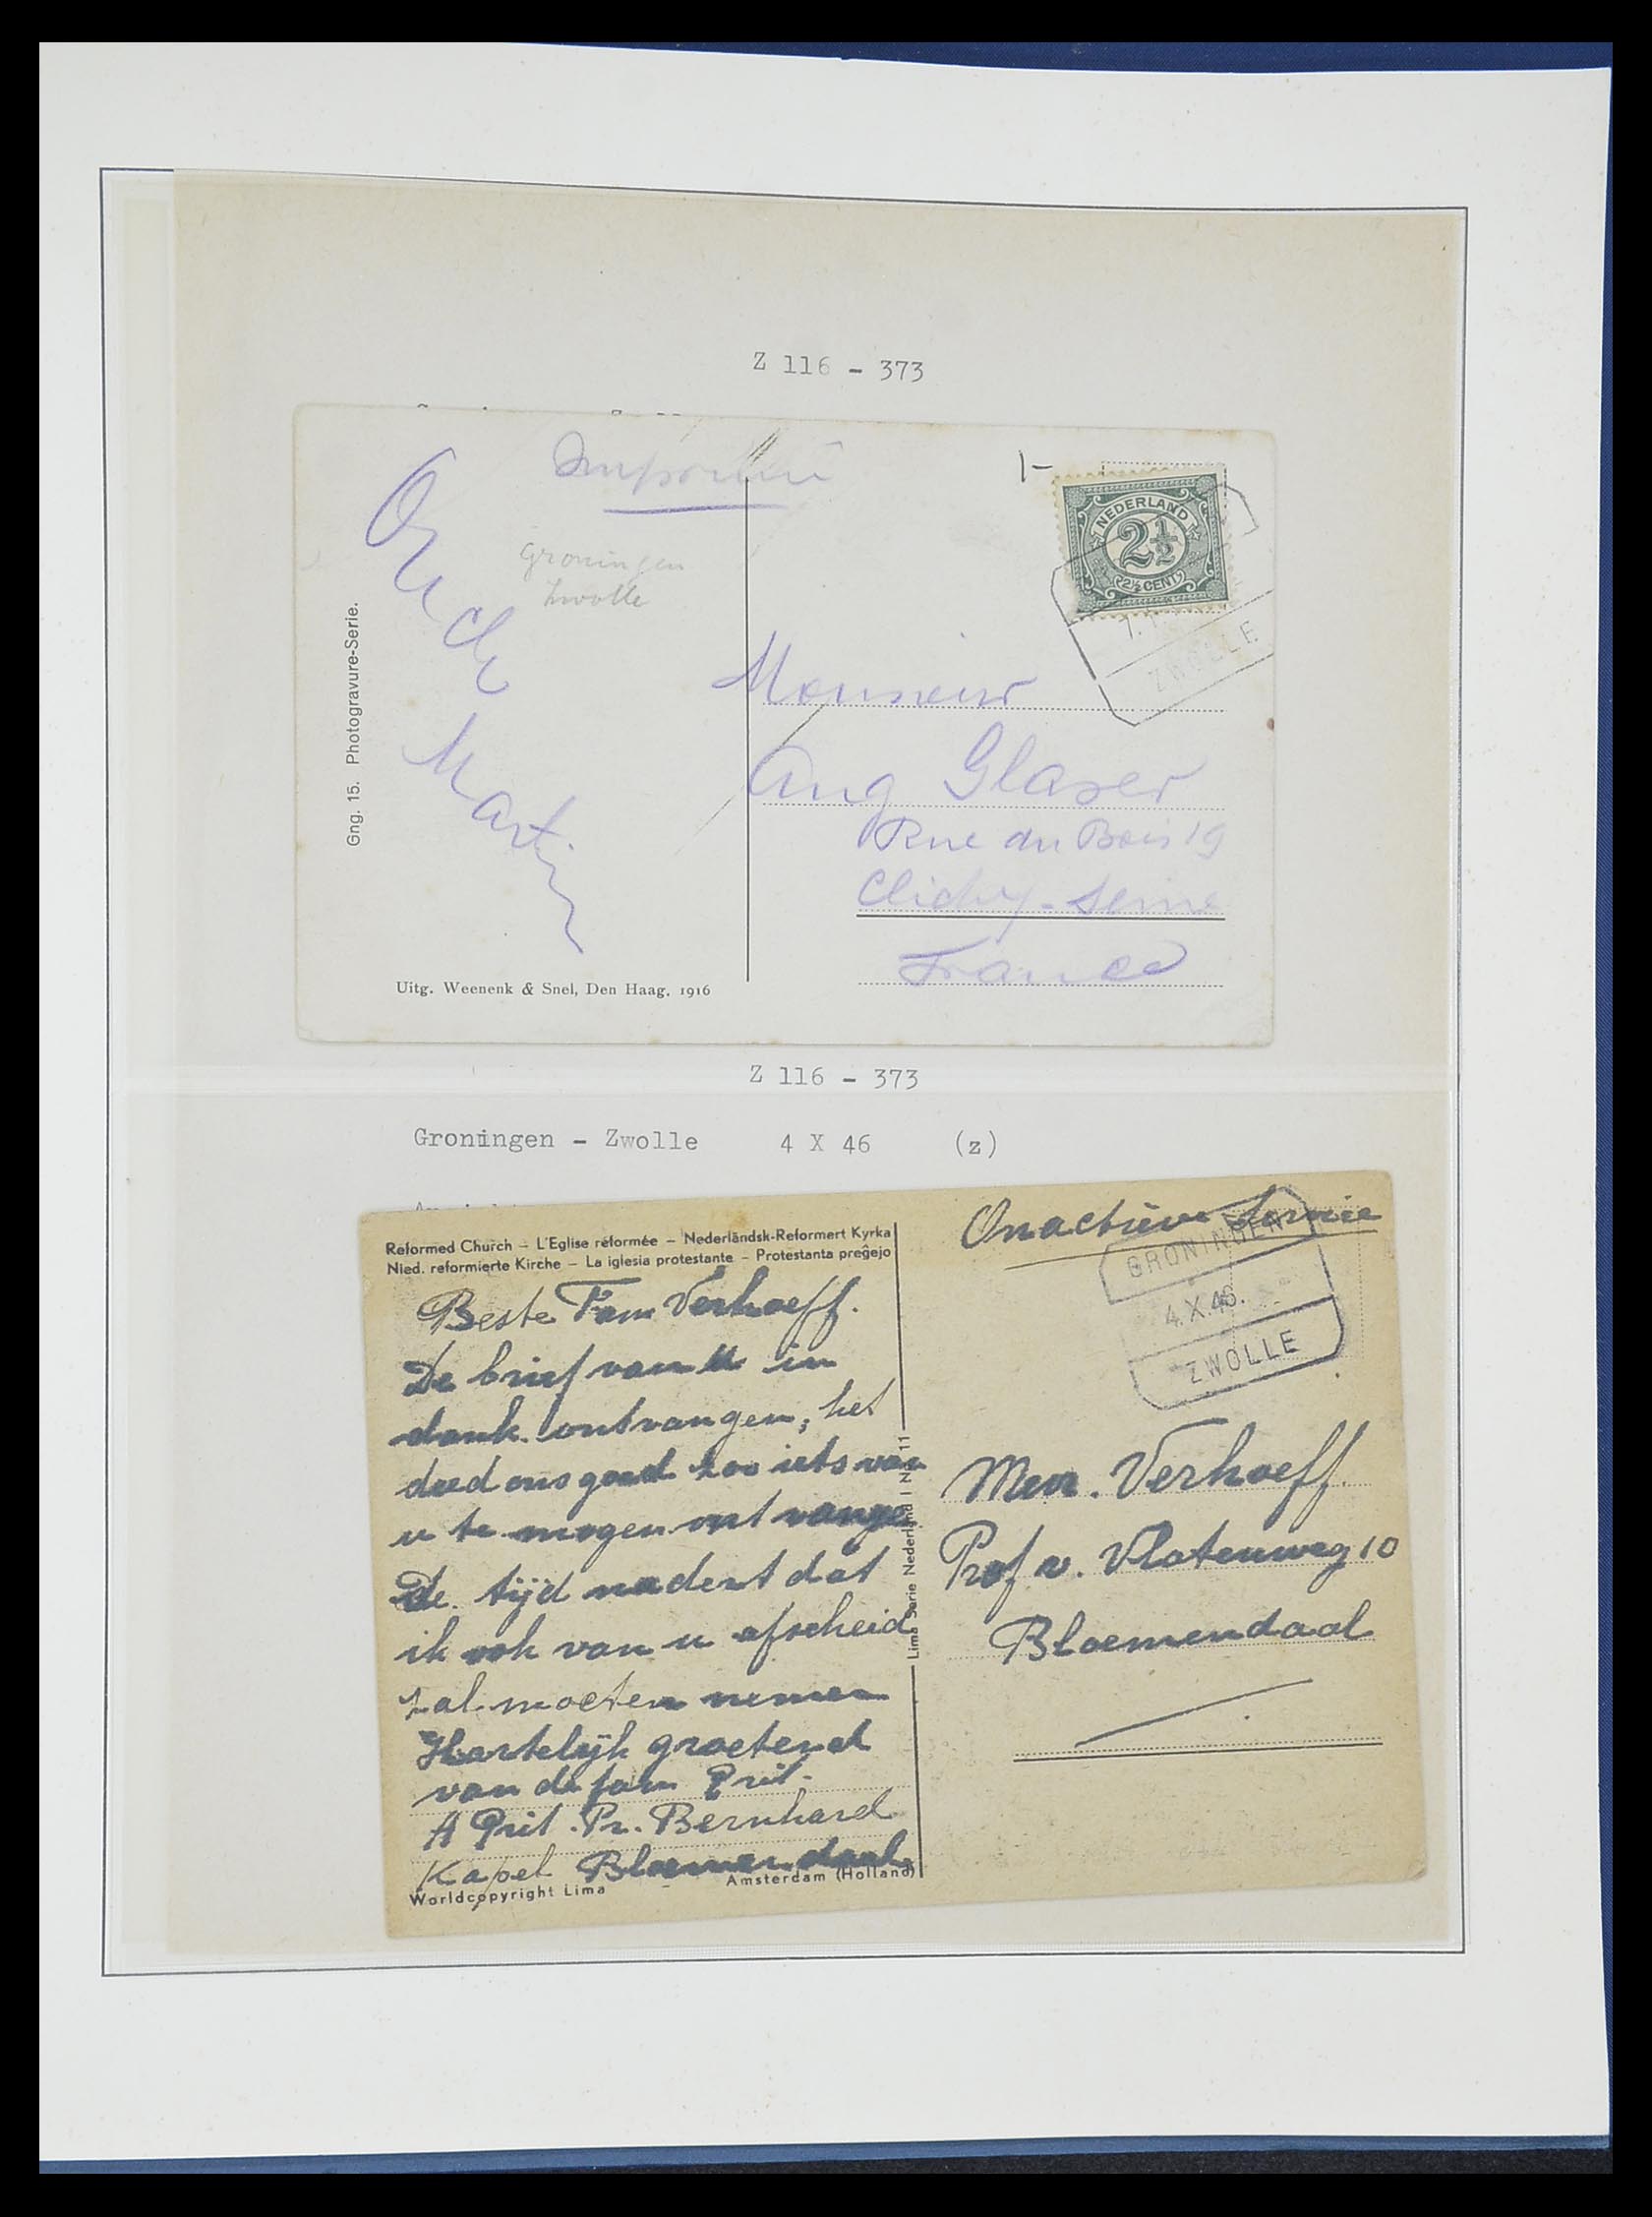 Z 116 - 373
Imprimé
Groningen
Zwolle
Oncle
Martin
Gng. 15. Photogravure-Serie.
NEDERLAND
2½
2½ CENT
ZWOLLE
Monsieur
Aug Glaser
Rue du Bois 19
Clichy - Seine
France
Uitg. Weenenk & Snel, Den Haag, 1916
Z 116 - 373
Groningen - Zwolle 4 X 46 (z)
Reformed Church – L'Eglise réformée – Nederländsk-Reformert Kyrka
Nied. reformierte Kirche – La iglesia protestante – Protestanta preĝejo
Beste Fam Verhoeff.
De brief van u in
dank ontvangen, het
deed ons goed zoo iets van
u te mogen ontvange
De tijd nadert dat
ik ook van u afscheid
zal moeten nemen
Hartelijk groetend
van de fam Pril.
A Pril. Pr. Bernhard
Kapel Bloemendaal
Worldcopyright Lima
Amsterdam (Holland)
Lima Serie Nederland
11
GRONINGEN
4.X.46.
ZWOLLE
Mer. Verhoeff.
Prof v. Vlotenweg 10
Bloemendaal